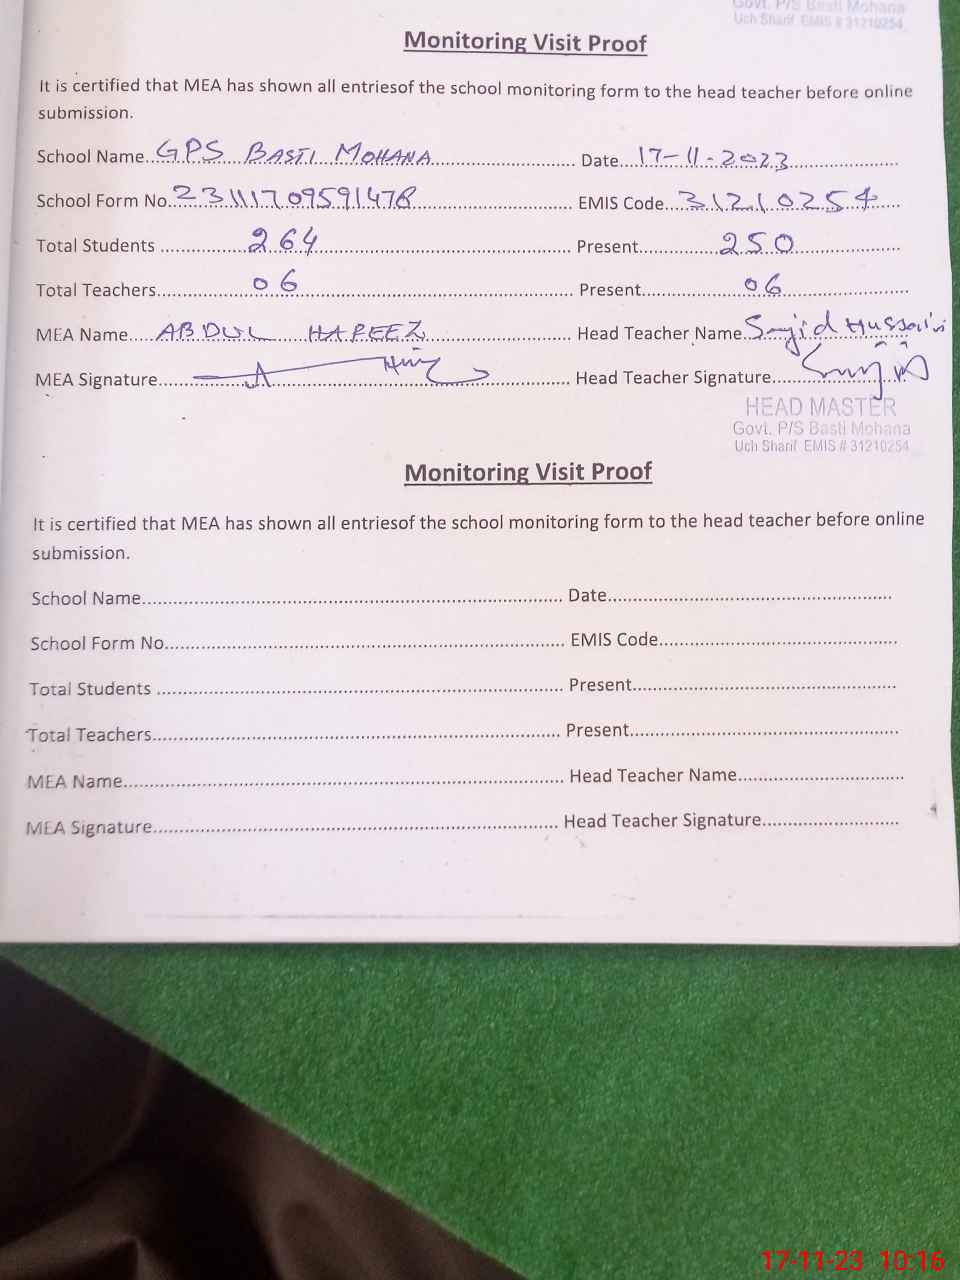 Govt. P/S Basti Mohana
Uch Sharif EMIS # 31210254
Monitoring Visit Proof
It is certified that MEA has shown all entriesof the school monitoring form to the head teacher before online
submission.
School Name...GPS BASTI MOHANA... Date...17-11-2023...
School Form No.23111709591478... EMIS Code...31210254...
Total Students ...264... Present...250...
Total Teachers...06... Present...06...
MEA Name...ABDUL HAFEEZ... Head Teacher Name...Sajid Hussain
MEA Signature... Head Teacher Signature...
HEAD MASTER
Govt. P/S Basti Mohana
Uch Sharif EMIS # 31210254
Monitoring Visit Proof
It is certified that MEA has shown all entriesof the school monitoring form to the head teacher before online
submission.
School Name... Date...
School Form No... EMIS Code...
Total Students ... Present...
Total Teachers... Present...
MEA Name... Head Teacher Name...
MEA Signature... Head Teacher Signature...
17-11-23 10:16